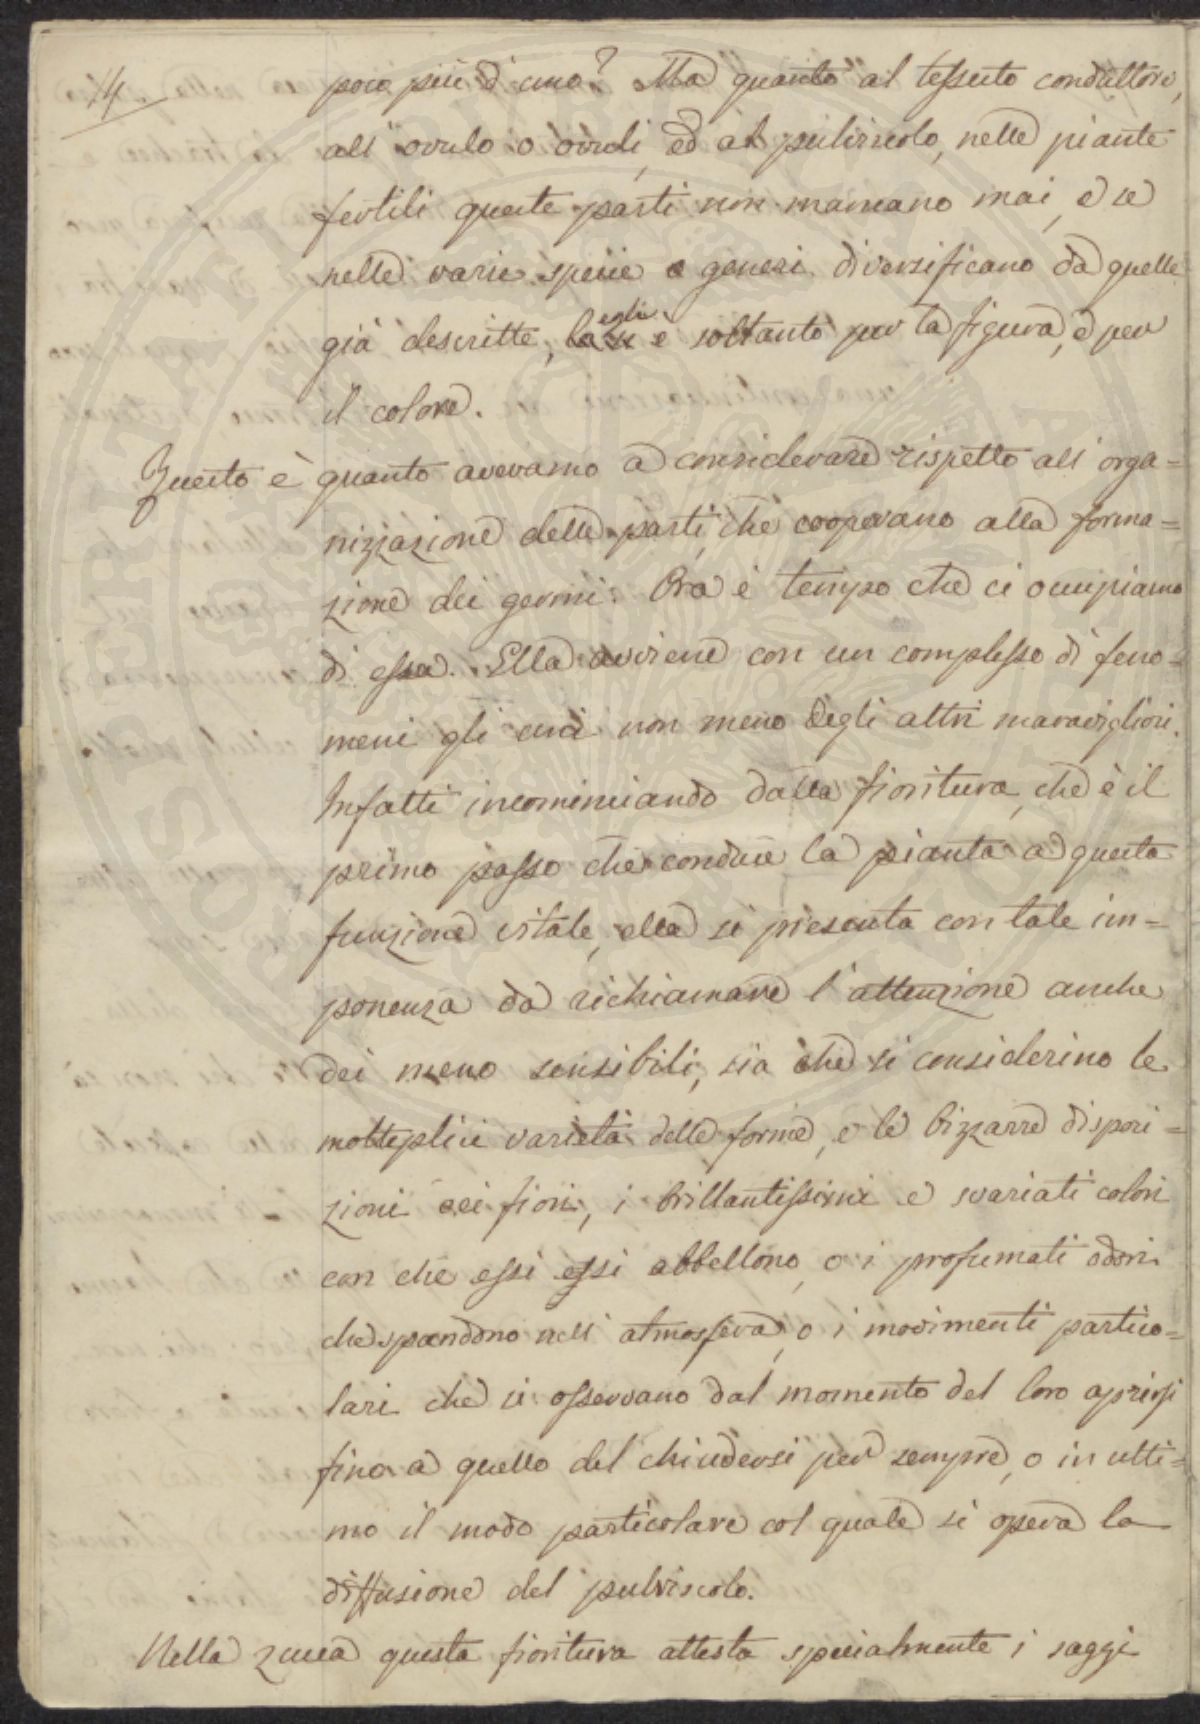 14.
poco più d'uno? Ma quanto al tessuto conduttore,
all'ovulo o ovuli, ed al pulviscolo, nelle piante
fertili queste parti non mancano mai, e se
nelle varie specie e generi diversificano da quelle
egli
già descritte, è soltanto per la figura, e per
il colore.
Questo è quanto avevamo a considerare rispetto all'orga=
nizzazione delle parti, che cooperano alla forma=
zione dei germi. Ora è tempo che ci occupiamo
di essa. Ella avviene con un complesso di feno=
meni gli uni non meno degli altri maravigliosi.
Infatti incominciando dalla fioritura, che è il
primo passo che conduce la pianta a questa
funzione vitale, ella si presenta con tale im=
ponenza da richiamare l'attenzione anche
dei meno sensibili, sia che si considerino le
molteplici varietà delle forme, e le bizzarre disposi=
zioni dei fiori, i brillantissimi e svariati colori
con che essi essi abbellono, o i profumati odori
che spandono nell'atmosfera, o i movimenti partico=
lari che si osservano dal momento del loro aprirsi
fino a quello del chiudersi per sempre, o in ulti=
mo il modo particolare col quale si opera la
diffusione del pulviscolo.
Nella zucca questa fioritura attesta specialmente i saggi